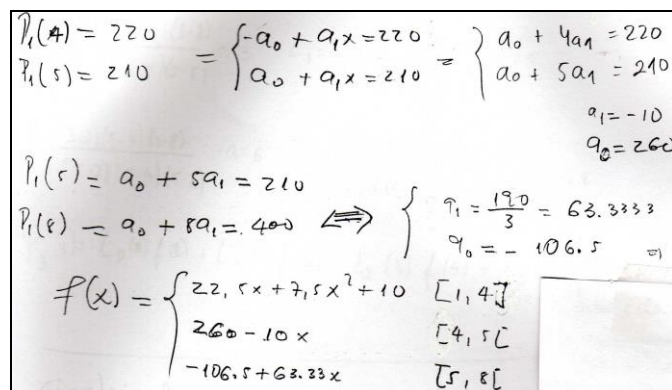 P₁(4) = 220 = { -a₀ + a₁x = 220 = { a₀ + 4a₁ = 220
P₁(5) = 210 a₀ + a₁x = 210 a₀ + 5a₁ = 210
a₁ = -10
a₀ = 260
P₁(5) = a₀ + 5a₁ = 210
P₁(8) = a₀ + 8a₁ = 400 ⟺ { a₁ = 190/3 = 63.3333
a₀ = - 106.5
f(x) = { 22,5x + 7,5x² + 10 [1, 4]
260 - 10x [4, 5[
-106.5 + 63.33x [5, 8[